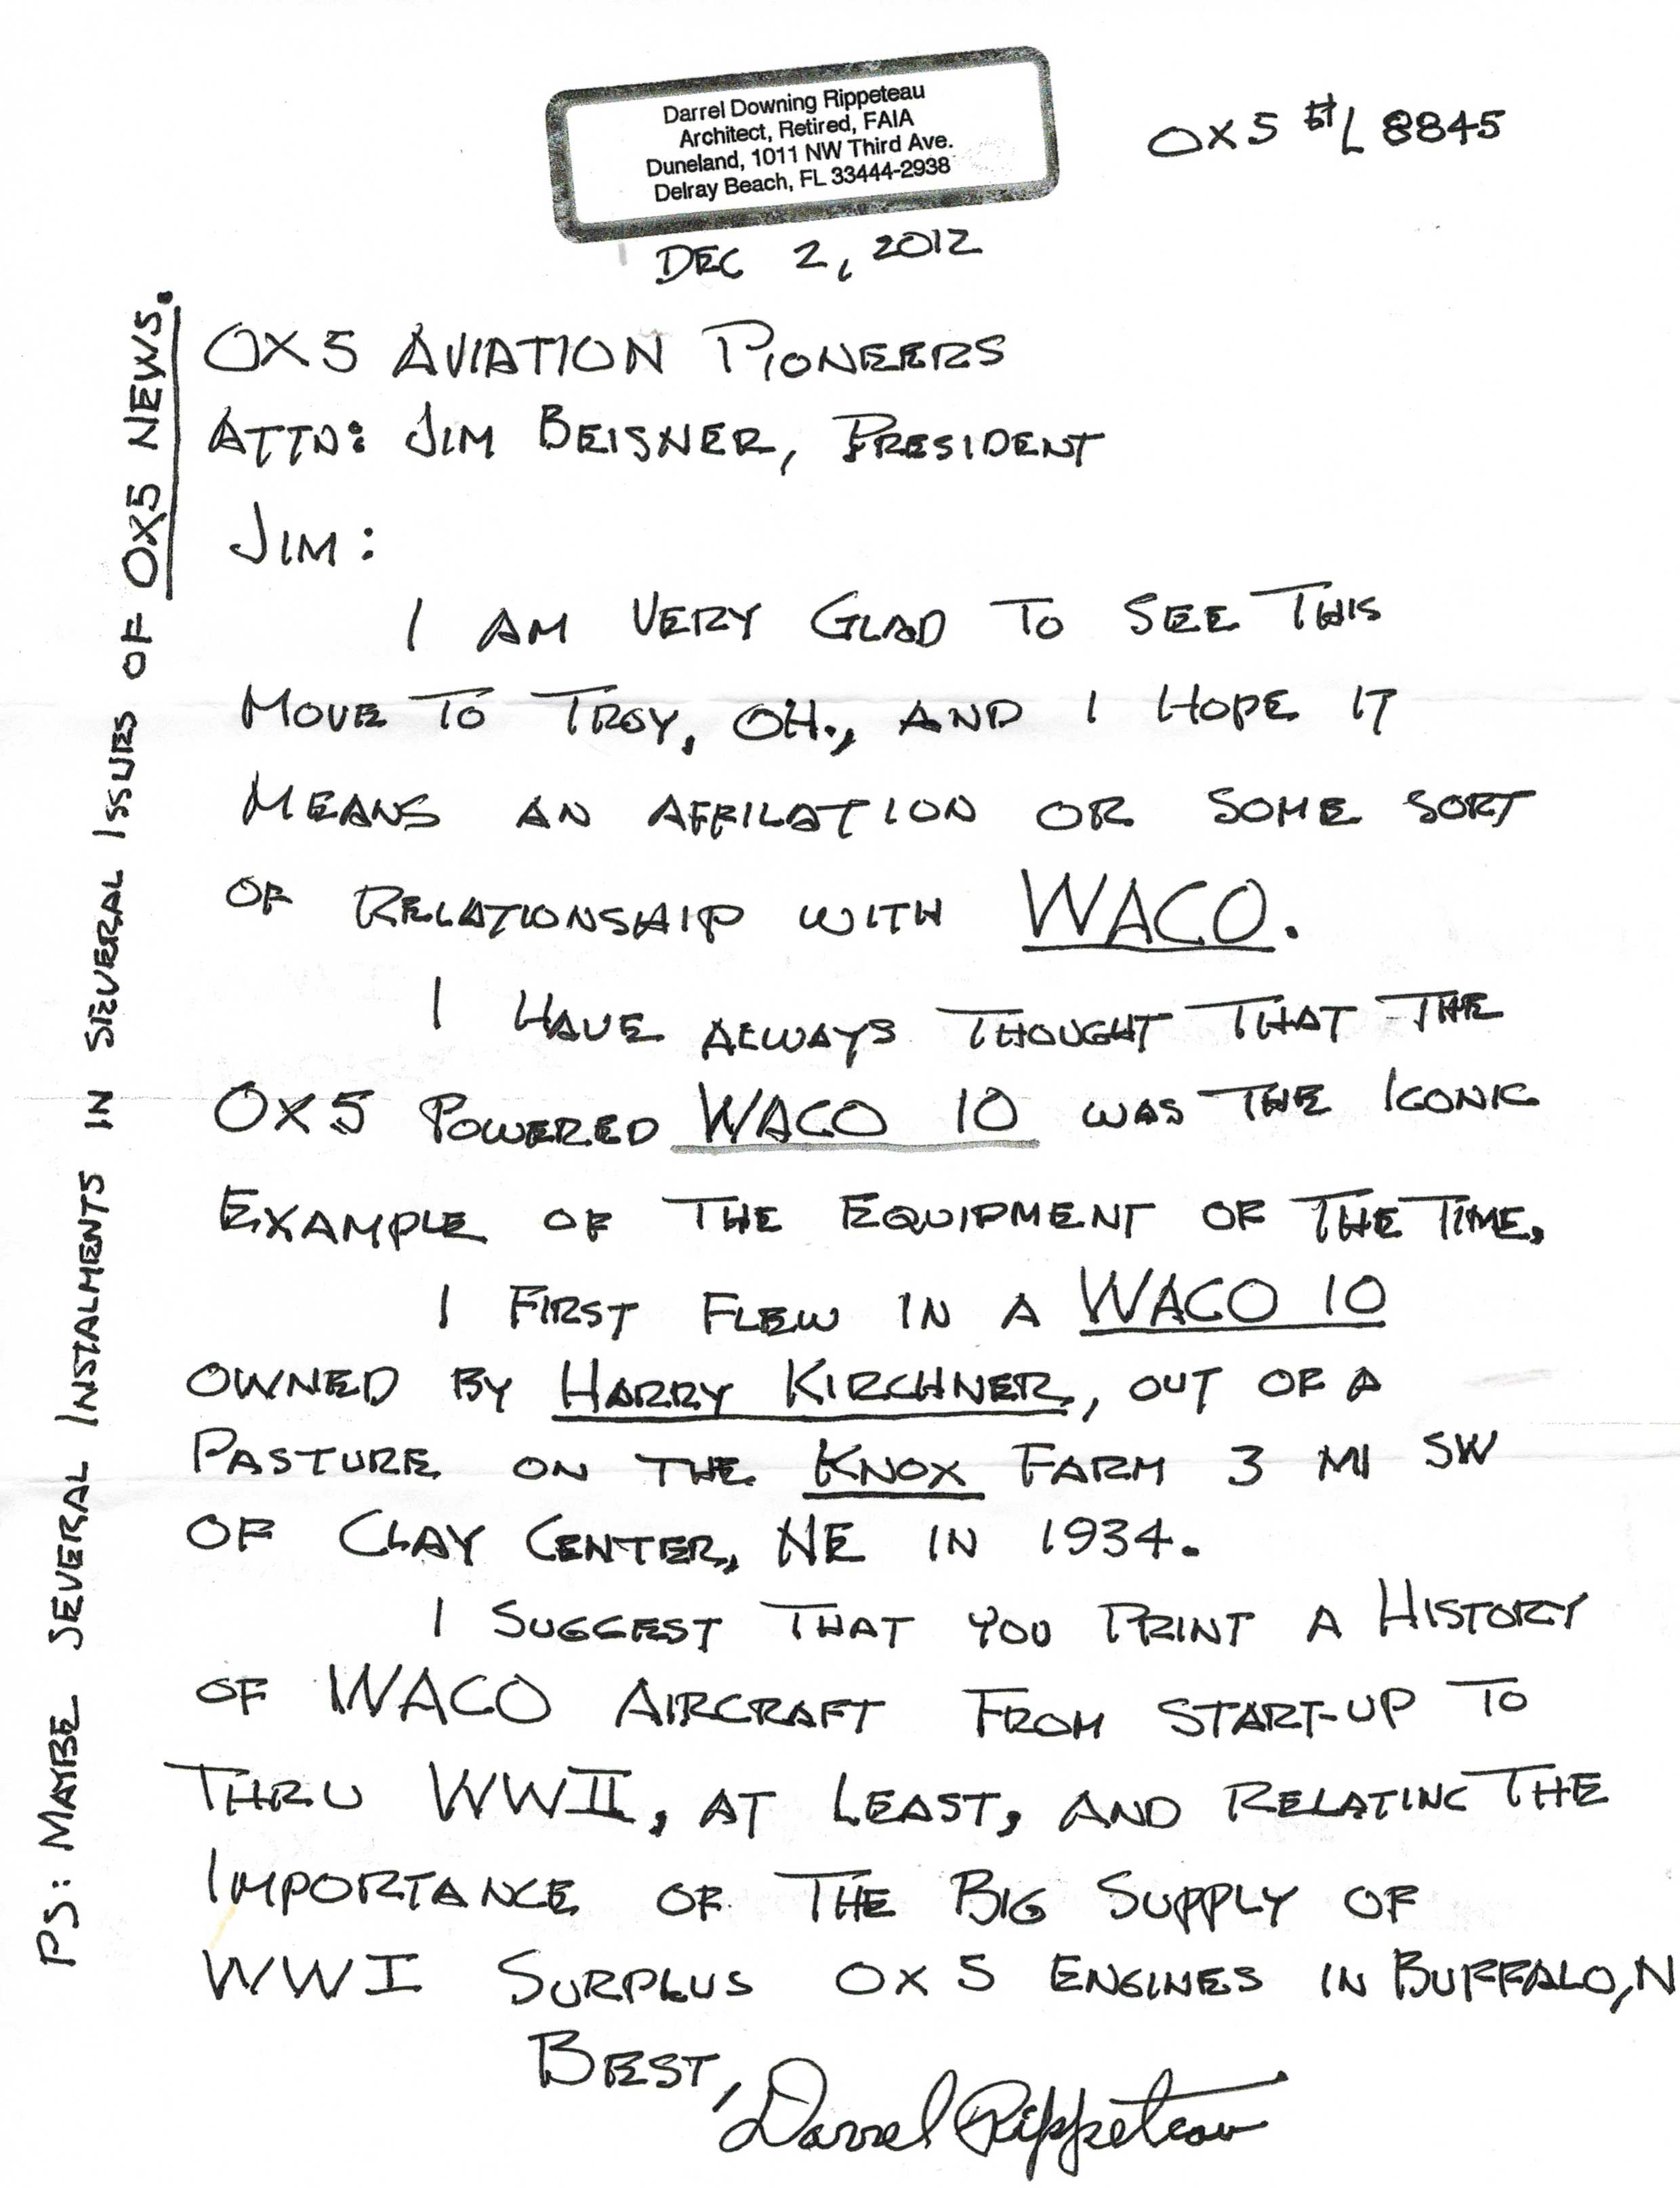 Darrel Downing Rippeteau
Architect, Retired, FAIA
Duneland, 1011 NW Third Ave.
Delray Beach, FL 33444-2938
OX5 #L 8845
DEC 2, 2012
OX5 AVIATION PIONEERS
ATTN: JIM BEISNER, PRESIDENT
JIM:
I AM VERY GLAD TO SEE THIS
MOVE TO TROY, OH., AND I HOPE IT
MEANS AN AFFILATION OR SOME SORT
OF RELATIONSHIP WITH WACO.
I HAVE ALWAYS THOUGHT THAT THE
OX5 POWERED WACO 10 WAS THE ICONIC
EXAMPLE OF THE EQUIPMENT OF THE TIME.
I FIRST FLEW IN A WACO 10
OWNED BY HARRY KIRCHNER, OUT OF A
PASTURE ON THE KNOX FARM 3 MI SW
OF CLAY CENTER, NE IN 1934.
I SUGGEST THAT YOU PRINT A HISTORY
OF WACO AIRCRAFT FROM START-UP TO
THRU WWII, AT LEAST, AND RELATING THE
IMPORTANCE OF THE BIG SUPPLY OF
WWI SURPLUS OX5 ENGINES IN BUFFALO, N
BEST,
Darrel Rippeteau
PS: MAYBE SEVERAL INSTALMENTS IN SEVERAL ISSUES OF OX5 NEWS.